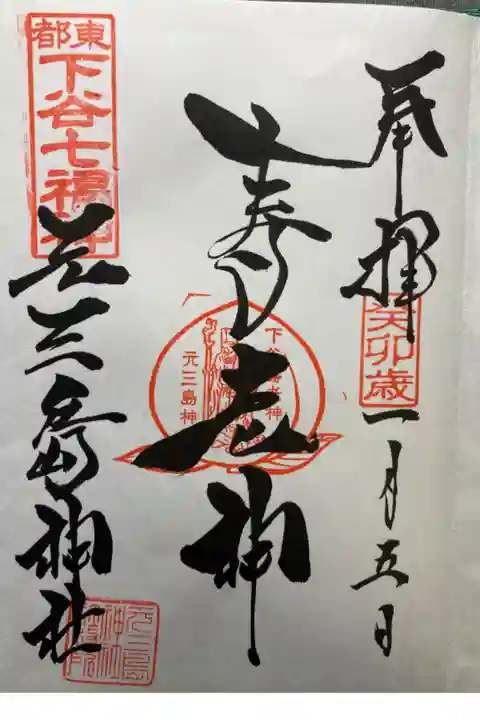 奉拝
癸卯歳
一月五日
寿老神
下谷寿老神
元三島神
東都
下谷七福神
元三島神社